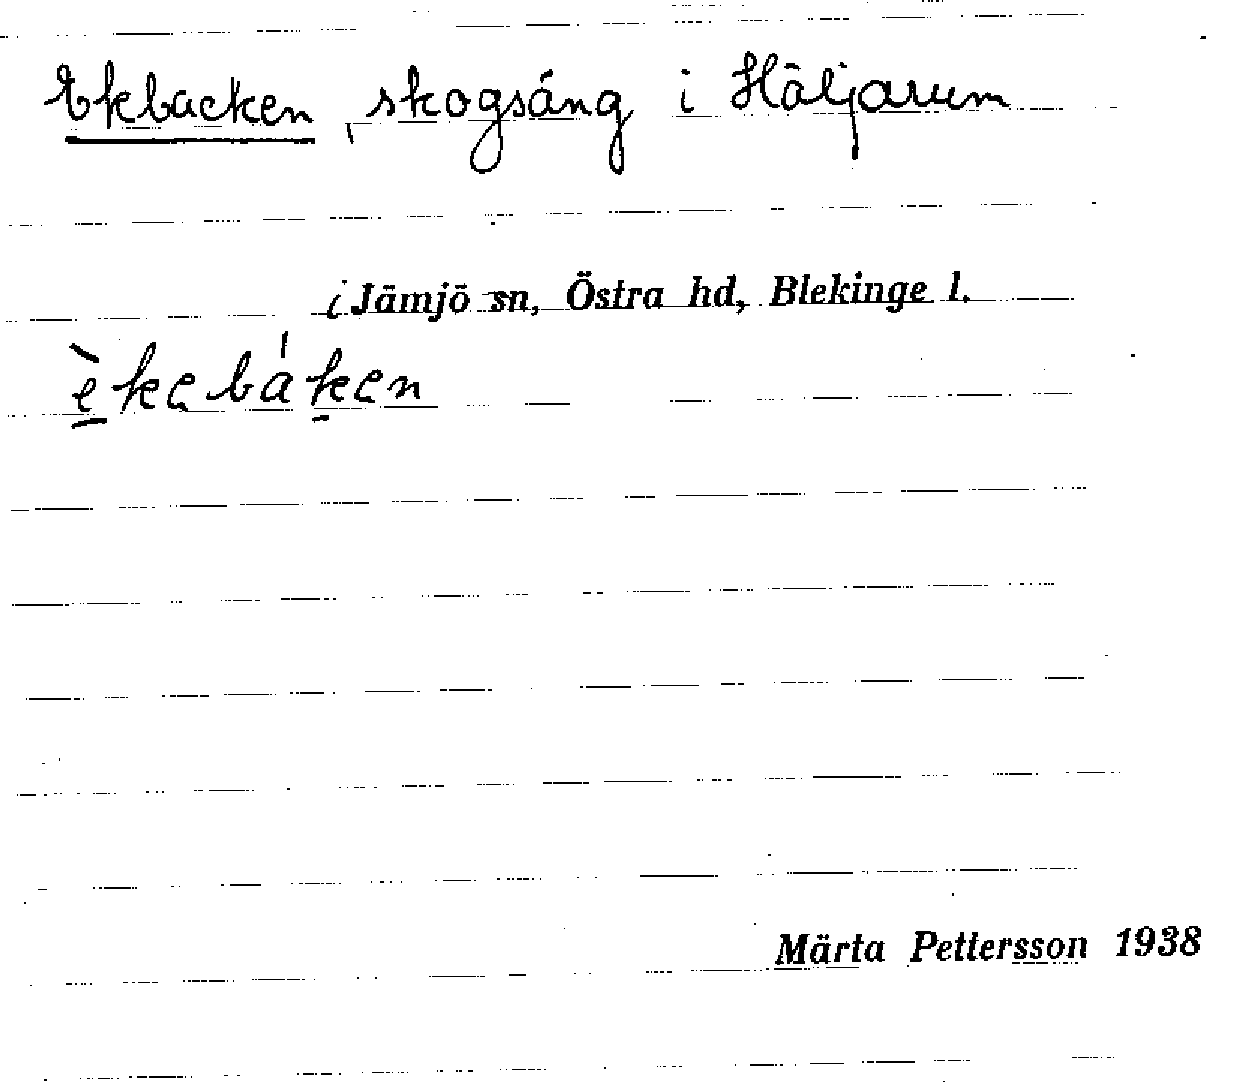 Ekbacken, skogsäng i Häljarum
i Jämjö sn, Östra hd, Blekinge l.
èkebáken
Märta Pettersson 1938